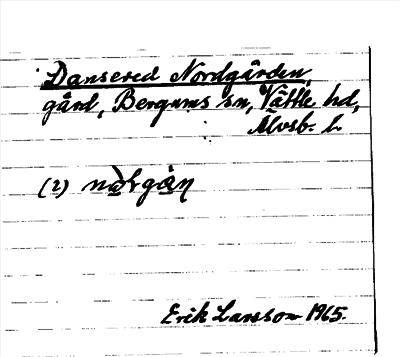 Dansered Nordgården,
gård, Bergums sn, Vättle hd,
Älvsb. l.
(2)
Erik Larsson 1965.